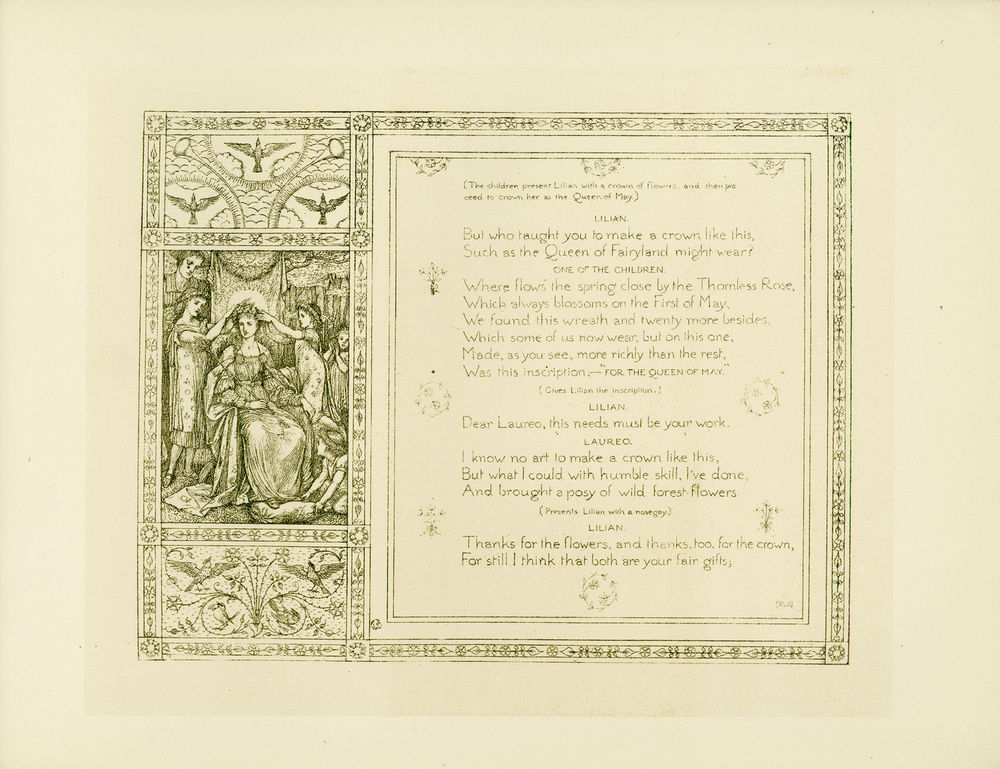 (The children present Lilian with a crown of flowers, and then pro
ceed to crown her as the Queen of May.)
LILIAN.
But who taught you to make a crown like this,
Such as the Queen of Fairyland might wear?
ONE OF THE CHILDREN.
Where flows the spring close by the Thornless Rose,
Which always blossoms on the First of May,
We found this wreath and twenty more besides,
Which some of us now wear, but on this one,
Made, as you see, more richly than the rest,
Was this inscription,—"FOR THE QUEEN OF MAY."
(Gives Lilian the inscription.)
LILIAN.
Dear Laureo, this needs must be your work.
LAUREO.
I know no art to make a crown like this,
But what I could with humble skill, I've done,
And brought a posy of wild forest-flowers.
(Presents Lilian with a nosegay.)
LILIAN.
Thanks for the flowers, and thanks, too, for the crown,
For still I think that both are your fair gifts;